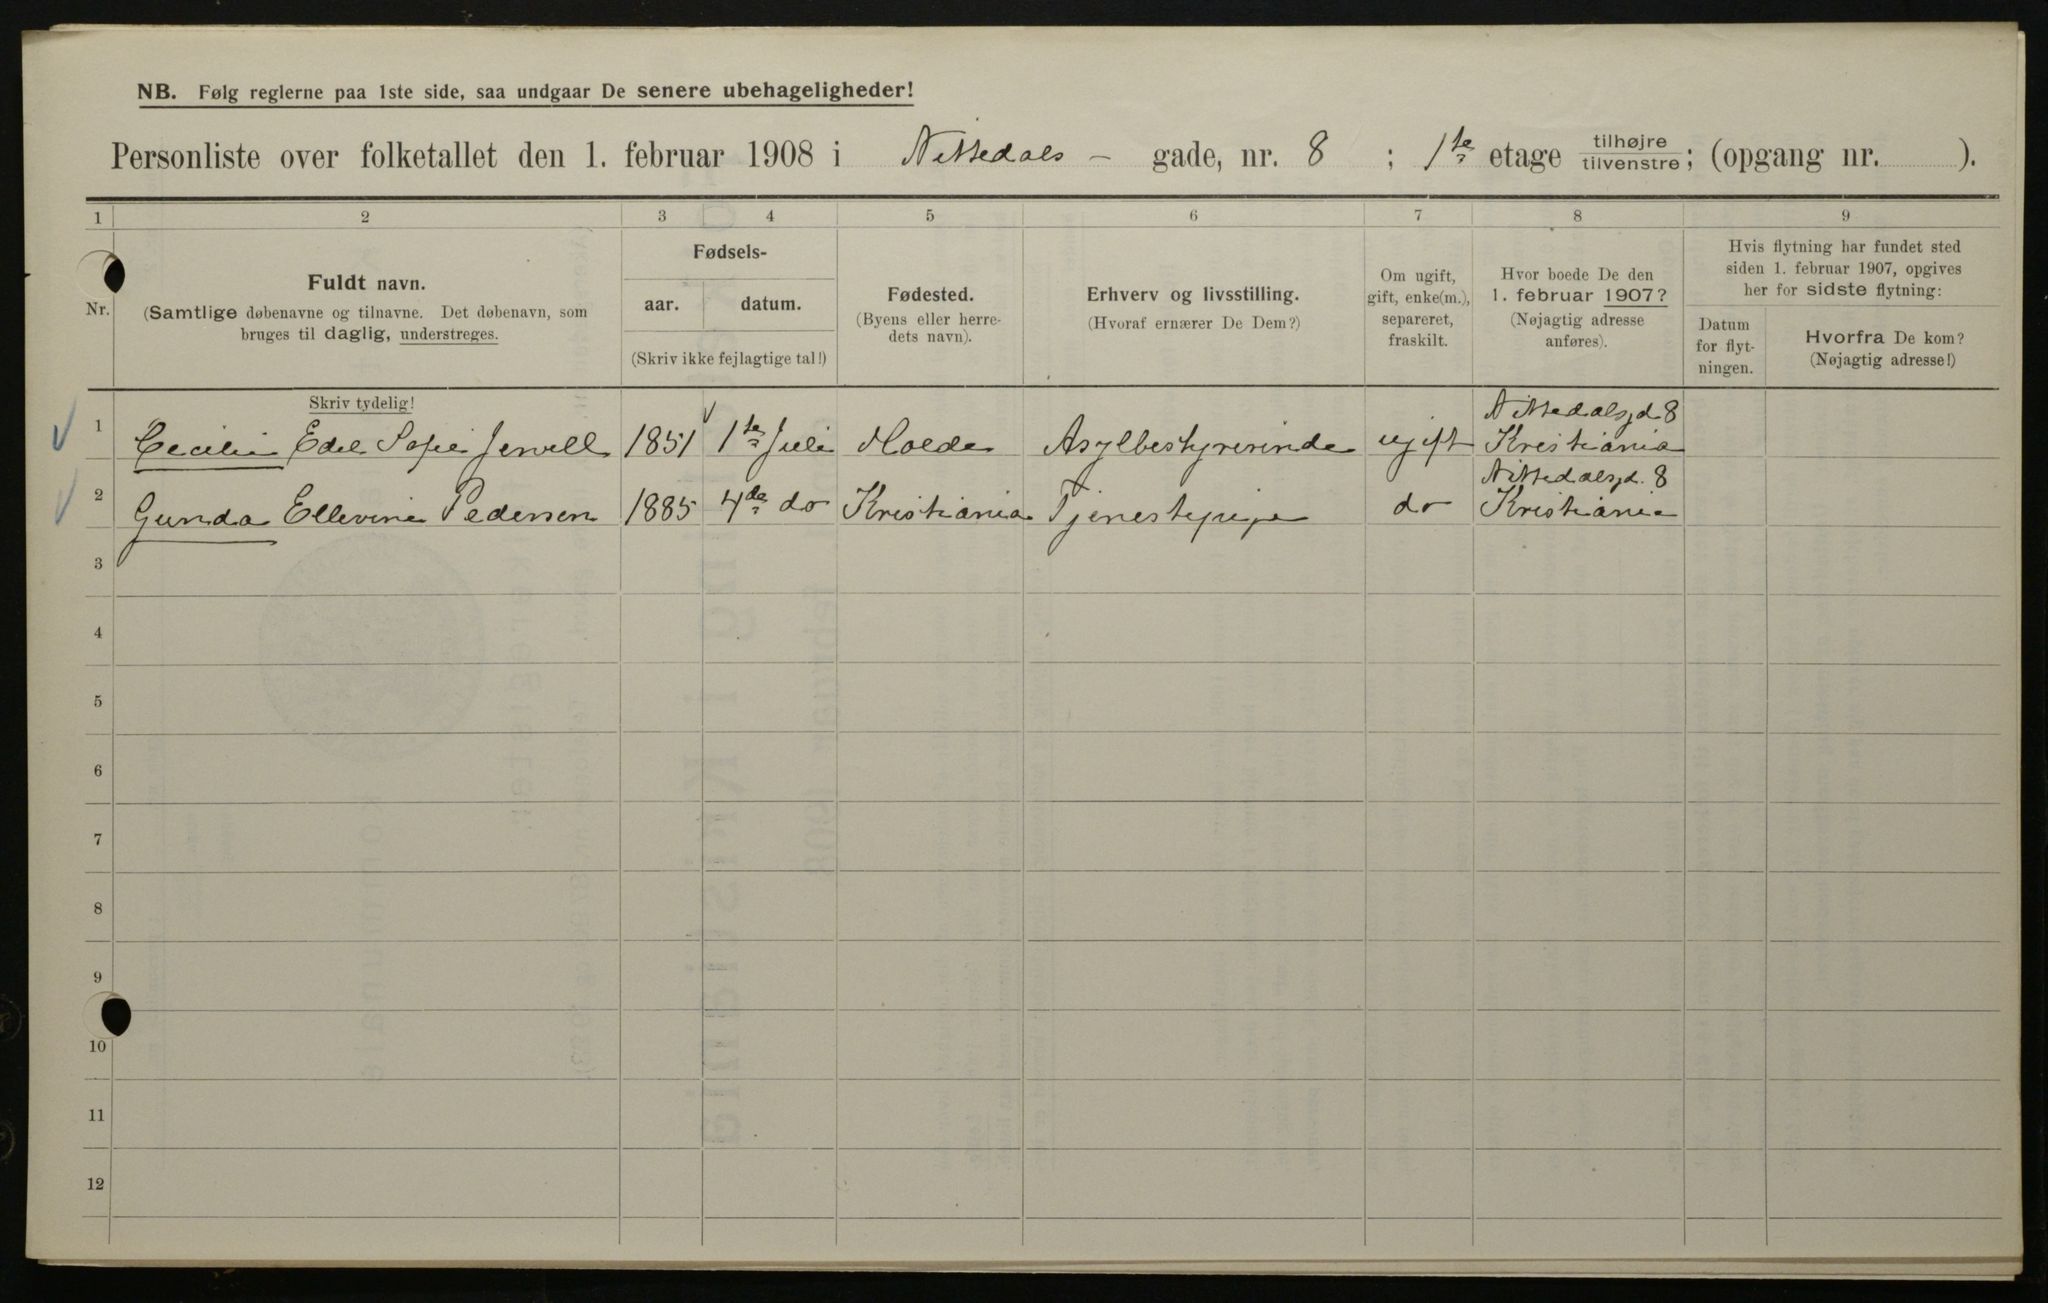 NB. Følg reglerne paa 1ste side, saa undgaar De senere ubehageligheder!
Personliste over folketallet den 1. februar 1908 i Nittedals - gade, nr. 8 ; 1ste etage tilhøjre/tilvenstre; (opgang nr. ).
1 2 3 4 5 6 7 8 9
Nr.
Fuldt navn.
(Samtlige døbenavne og tilnavne. Det døbenavn, som
bruges til daglig, understreges.
Skriv tydelig!
Fødsels-
aar. datum.
(Skriv ikke fejlagtige tal!)
Fødested.
(Byens eller herre-
dets navn).
Erhverv og livsstilling.
(Hvoraf ernærer De Dem?)
Om ugift,
gift, enke(m.),
separeret,
fraskilt.
Hvor boede De den
1. februar 1907?
(Nøjagtig adresse
anføres).
Hvis flytning har fundet sted
siden 1. februar 1907, opgives
her for sidste flytning:
Datum
for flyt-
ningen.
Hvorfra De kom?
(Nøjagtig adresse!)
Nittedalsgd. 8
1 Cecilie Edel Sofie Jervell 1851 1ste Juli Molde Asylbestyrerinde ugift Kristiania
Nittedalsgd. 8
2 Gunda Ellevine Pedersen 1885 4de do Kristiania Tjenestepige do Kristiania
3
4
5
6
7
8
9
10
11
12